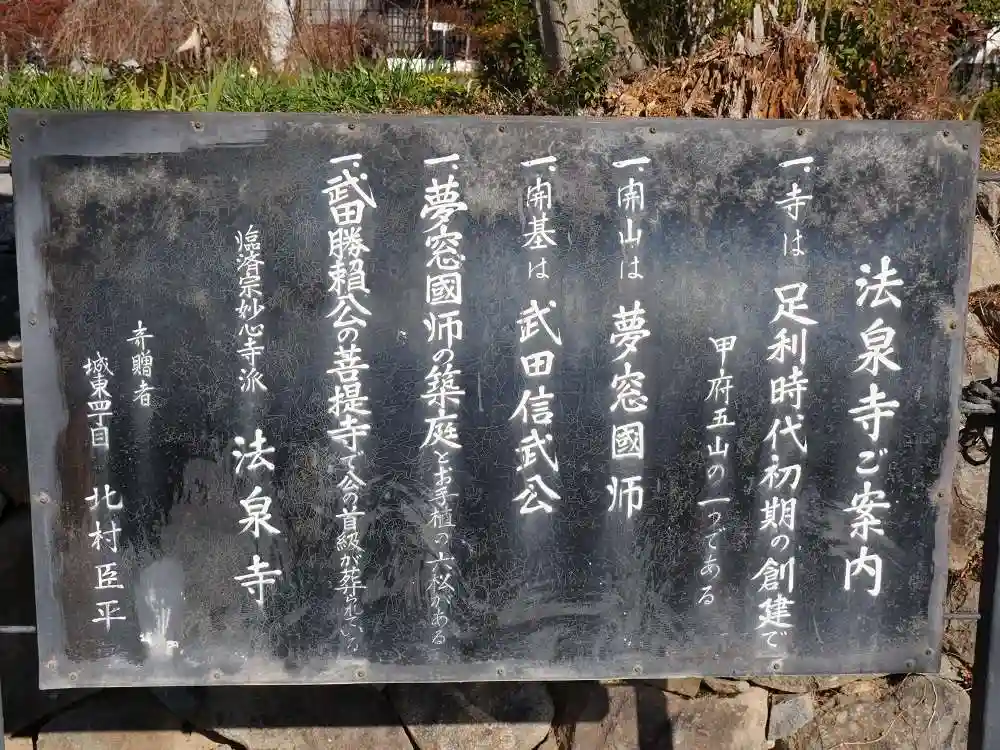 法泉寺ご案内
一、寺は 足利時代初期の創建で
甲府五山の一つである
一、開山は 夢窓國师
一、開基は 武田信武公
一、夢窓國师の築庭とお手植の六松がある
一、武田勝頼公の菩提寺で公の首級が葬られている
臨済宗妙心寺派 法泉寺
寄贈者
城東四丁目 北村臣平